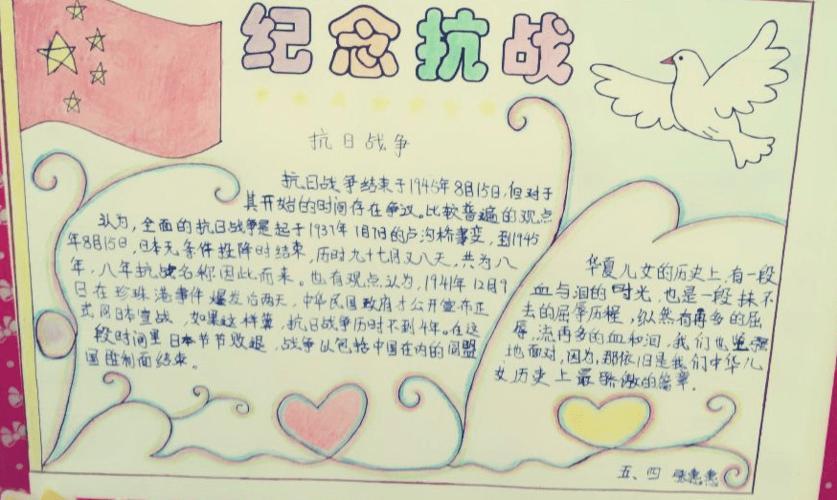 纪念抗战
抗日战争
抗日战争结束于1945年8月15日,但对于
其开始的时间存在争议。比较普遍的观点
认为,全面的抗日战争是起于1937年7月7日的卢沟桥事变,到1945
年8月15日,日本无条件投降时结束,历时九十七月又八天,共为八
年,八年抗战名称因此而来。也有观点认为,1941年12月9
日在珍珠港事件爆发沿两天,中华民国政府才公开宣布正
式向日本宣战,如果这样算,抗日战争历时不到4年。在这
段时间里日本节节败退,战争以包括中国在内的同盟
国胜利而结束。
华夏儿女的历史上,有一段
血与泪的时光,也是一段抹不
去的屈辱历程,纵然有再多的屈
辱,流再多的血和泪,我们也坚强
地面对,因为,那依旧是我们中华儿
女历史上最骄傲的篇章.
五、四